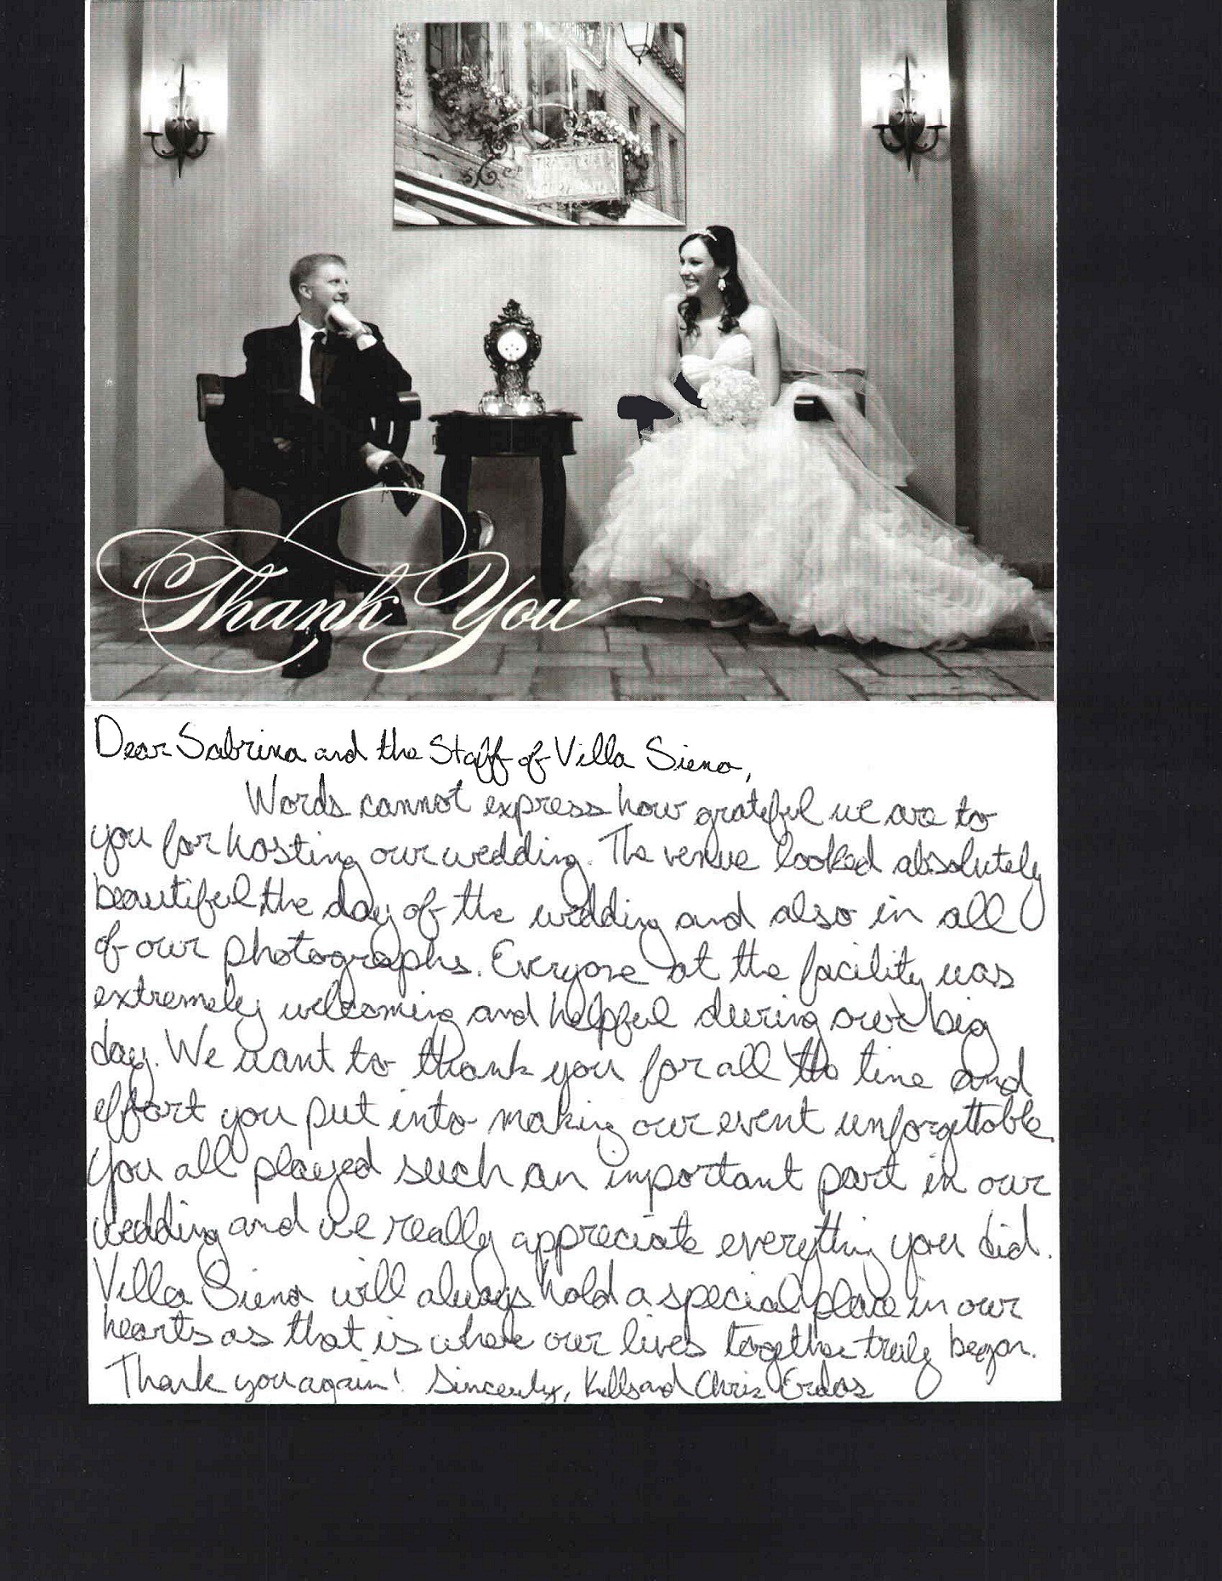 Thank You
Dear Sabrina and the Staff of Villa Siena,
Words cannot express how grateful we are to
you for hosting our wedding. The venue looked absolutely
beautiful the day of the wedding and also in all
of our photographs. Everyone at the facility was
extremely welcoming and helpful during our big
day. We want to thank you for all the time and
effort you put into making our event unforgettable.
You all played such an important part in our
wedding and we really appreciate everything you did.
Villa Siena will always hold a special place in our
hearts as that is where our lives together truly began.
Thank you again! Sincerely, and Chris Erdos